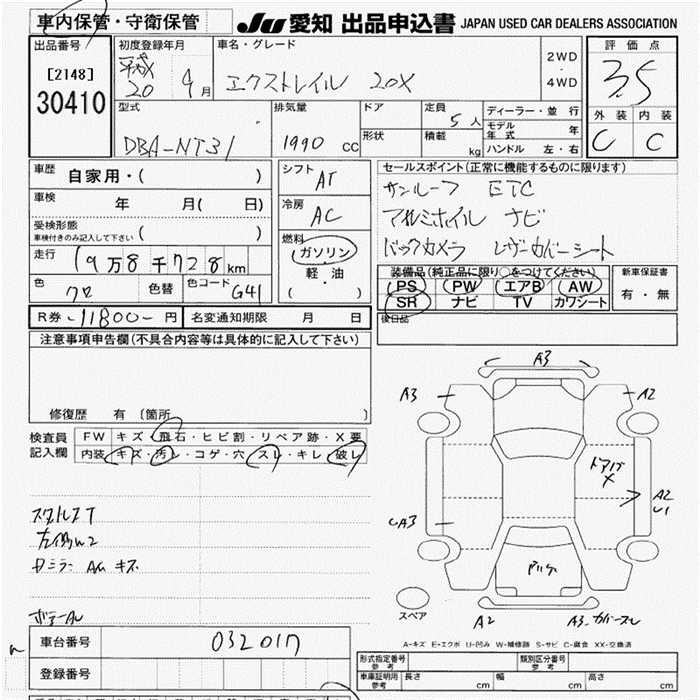 車内保管・守衛保管
JU 愛知 出品申込書 JAPAN USED CAR DEALERS ASSOCIATION
出品番号
[2148]
30410
初度登録年月
平成
20 4月
車名・グレード
エクストレイル 20X
2WD
・
4WD
評価点
3.5
外装 内装
C C
型式
DBA-NT31
排気量
1990 cc
ドア
形状
定員
5人
積載
kg
ディーラー・並行
モデル年式 年
ハンドル 左・右
車歴
自家用・( )
車検
年 月( 日)
受検形態
車検付きのみ記入して下さい ( )
走行
19万8千728km
色
クロ
色替
色コード G41
シフト
AT
冷房
AC
燃料
ガソリン
・
軽・油
( )
セールスポイント(正常に機能するものに限ります)
サンルーフ ETC
アルミホイル ナビ
バックカメラ レザーカバーシート
装備品(純正品に限り○をつけてください)
PS PW エアB AW
SR ナビ TV カワシート
新車保証書
有・無
後日品
R券 -11800- 円
名変通知期限 月 日
注意事項申告欄(不具合内容等は具体的に記入して下さい)
修復歴 有 〔箇所 〕
検査員
記入欄
FW キズ・飛石・ヒビ割・リペア跡・X要
内装 キズ・汚レ・コゲ・穴・スレ・キレ・破レ
A3
A3
A2
ドア
X
A2
U1
UA3
A2
スペア
A-キズ E-エクボ U-凹み W-補修跡 S-サビ C-腐食 XX-交換済
車台番号
032017
登録番号
形式指定番号
参考
類別区分番号
参考
車庫証明用
参考
長さ cm
幅 cm
高さ cm